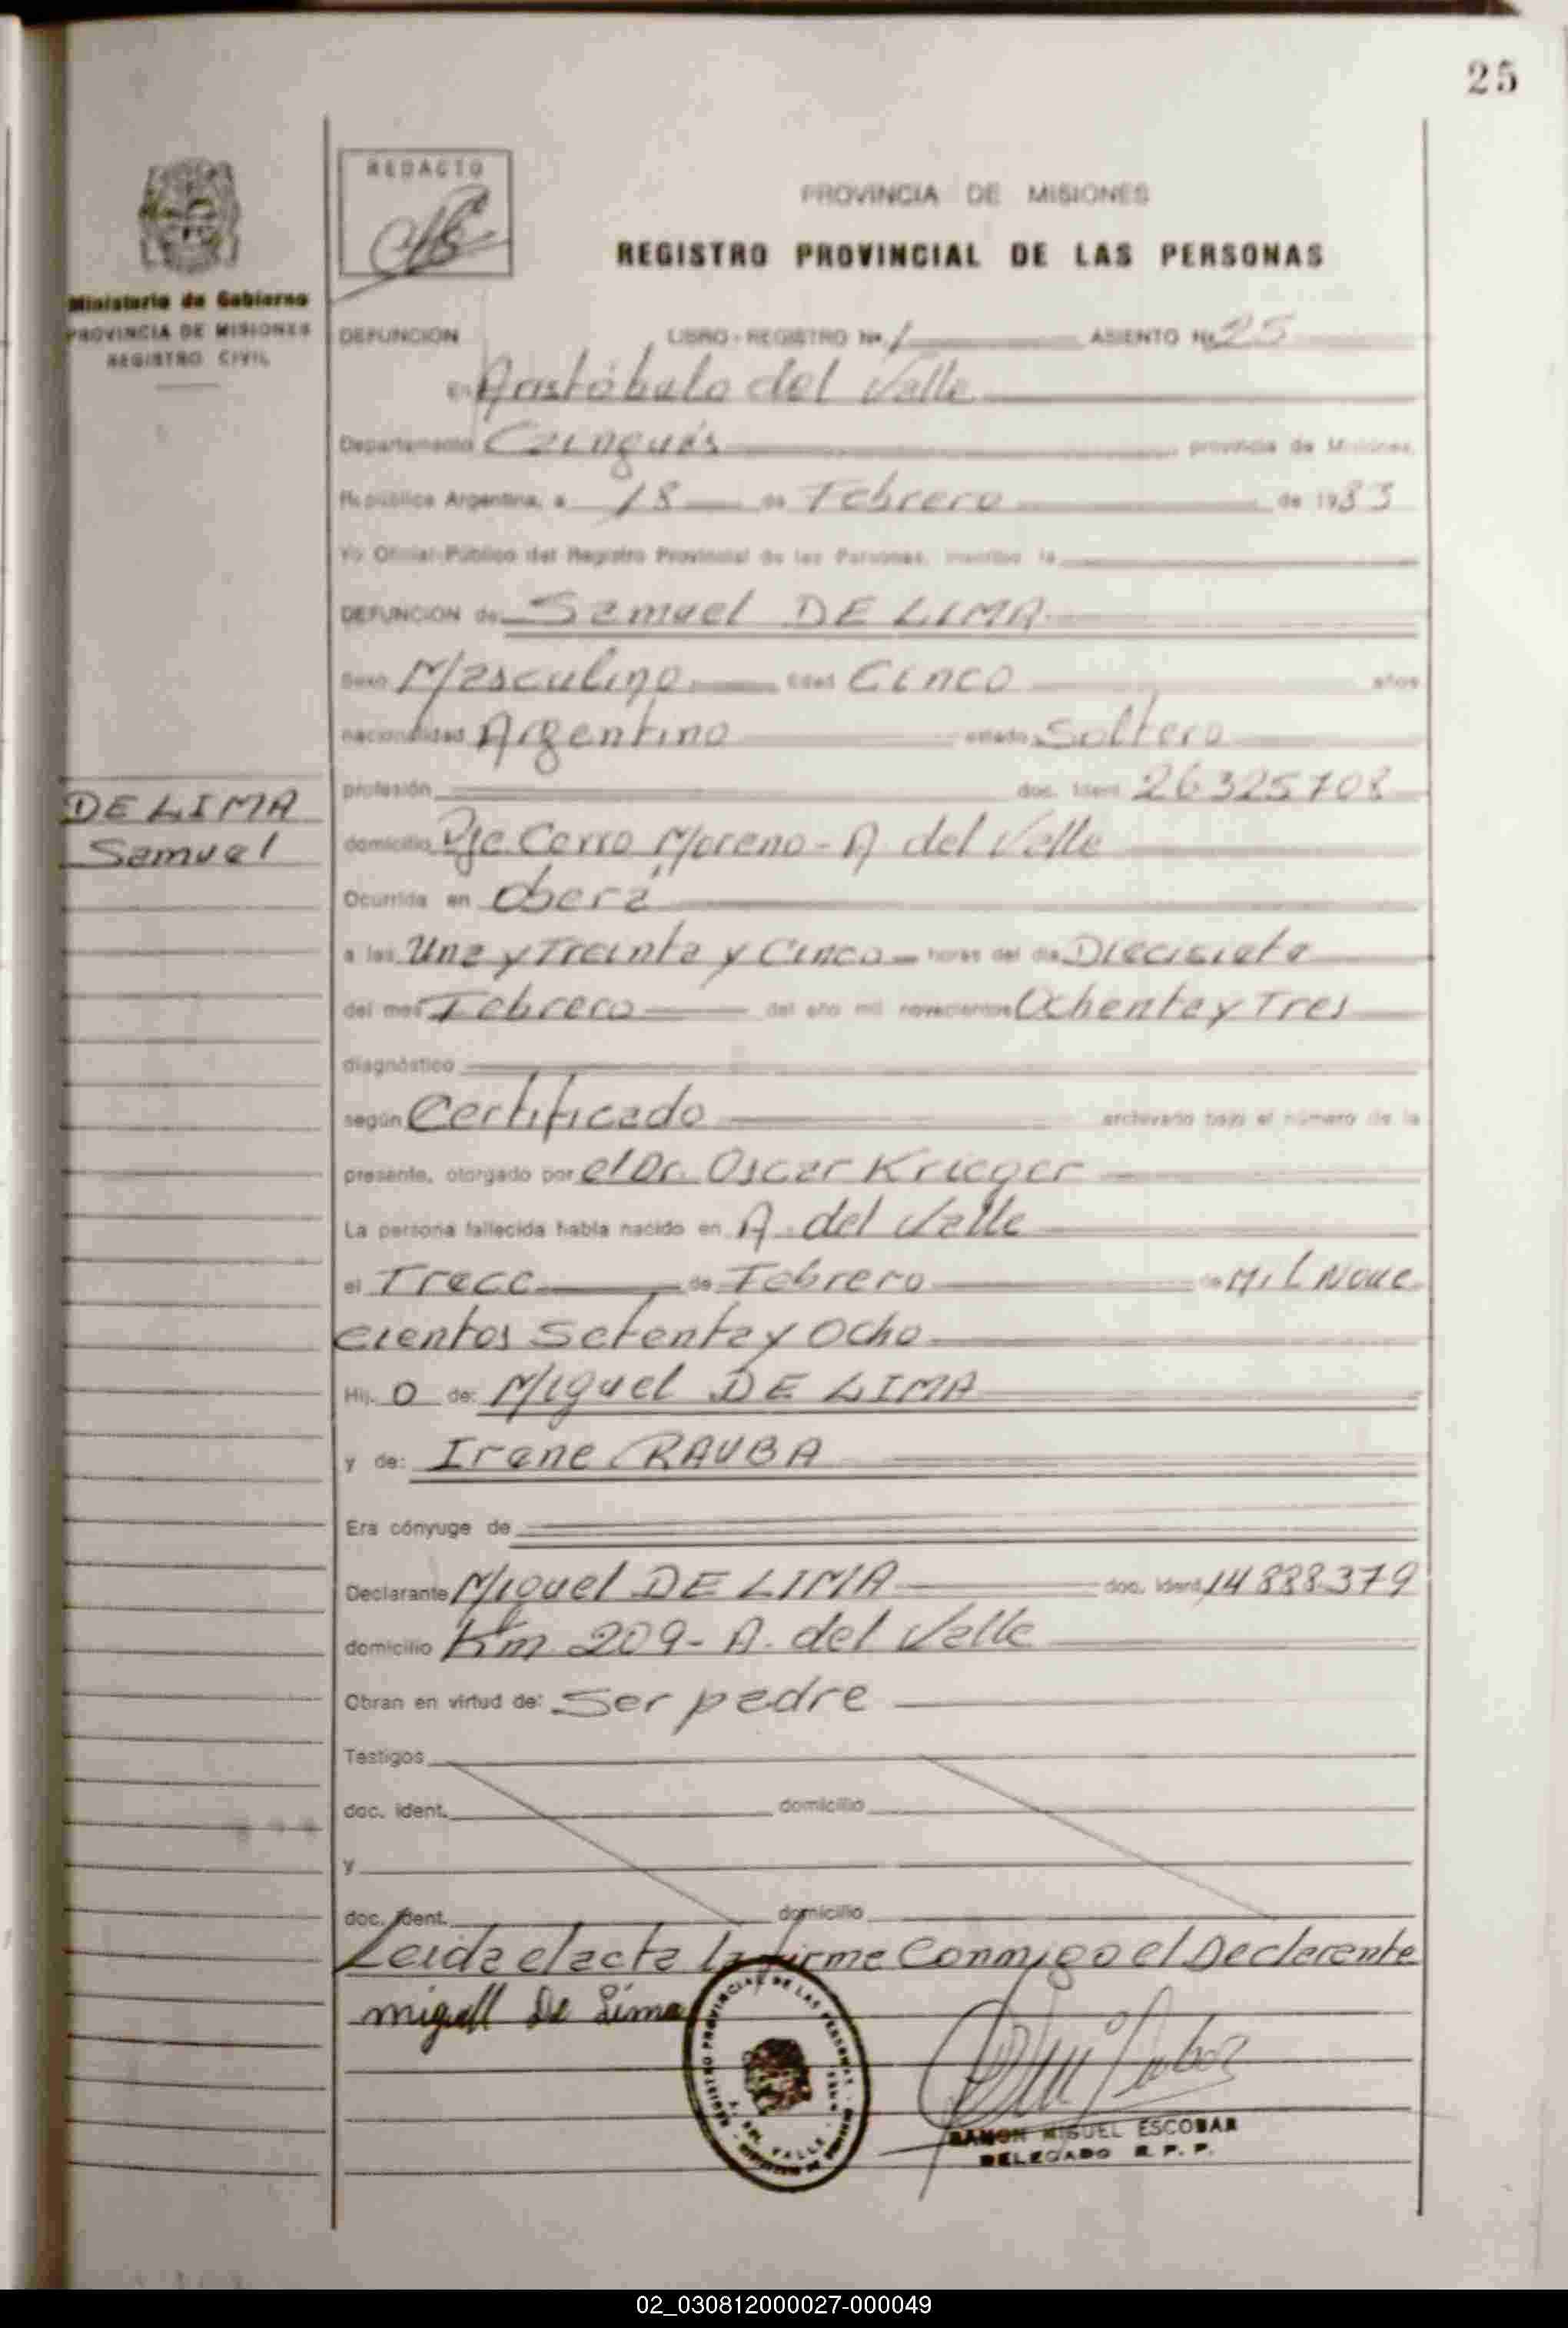 25
REDACTO
PROVINCIA DE MISIONES
REGISTRO PROVINCIAL DE LAS PERSONAS
Ministerio de Gobierno
PROVINCIA DE MISIONES
REGISTRO CIVIL
DEFUNCION LIBRO - REGISTRO Nº 1 ASIENTO Nº 25
En Aristóbulo del Valle
Departamento Cainguás provincia de Misiones,
República Argentina, a 18 de Febrero de 1983
Yo Oficial Público del Registro Provincial de las Personas, inscribo la
DEFUNCION de Samuel DE LIMA
Sexo Masculino Edad Cinco años
nacionalidad Argentino estado Soltero
profesión doc. Ident. 26325708
DE LIMA
Samuel
domicilio Pje. Cerro Moreno - A. del Valle
Ocurrida en Oberá
a las Una y Treinta y Cinco horas del día Diecisiete
del mes Febrero del año mil novecientos Ochenta y Tres
diagnóstico
según Certificado archivado bajo el número de la
presente, otorgado por el Dr. Oscar Krieger
La persona fallecida había nacido en A. del Valle
el Trece de Febrero de Mil Nove
cientos Setenta y Ocho
Hij o de: Miguel DE LIMA
y de: Irene RAUBA
Era cónyuge de
Declarante Miguel DE LIMA doc. Ident. 14888379
domicilio Km 209 - A. del Valle
Obran en virtud de: Ser padre
Testigos
doc. ident. domicilio
y
doc. ident. domicilio
Leida el acta la firme Conmigo el Declarante
miguel De Lima
REGISTRO PROVINCIAL DE LAS PERSONAS
A. DEL VALLE
RAMON MIGUEL ESCOBAR
DELEGADO R. P. P.
02_030812000027-000049